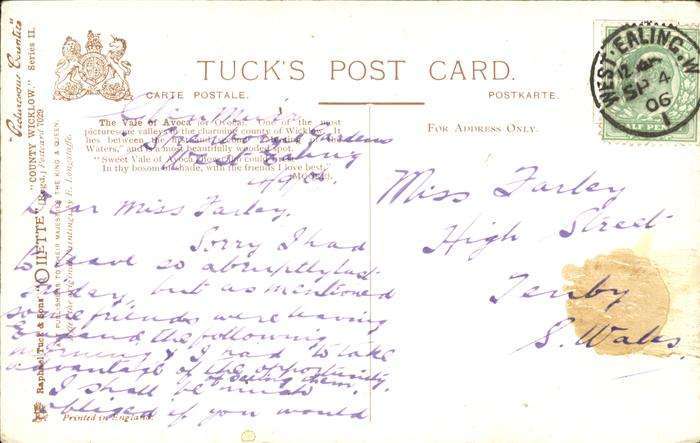 TUCK'S POST CARD.
CARTE POSTALE.
POSTKARTE.
"Picturesque Counties"
"COUNTY WICKLOW." Series II.
Raphael Tuck & Sons' "OILETTE" [Regd.] Postcard 1029
PUBLISHERS TO THEIR MAJESTIES THE KING & QUEEN.
Printed in England.
The Vale of Avoca (or Ovoca). One of the most
picturesque valleys in the charming county of Wicklow. It
lies between the
Waters," and is a most beautifully wooded spot.
"Sweet Vale of Avoca how calm could
In thy bosom of shade, with the friends I love best,"
MOORE.
FOR ADDRESS ONLY.
WEST-EALING.W
12
SP 4
06
1
HALF PENNY
Gardens
West Ealing
Dear Miss Farley.
Sorry I had
to leave so abruptly last
but as mentioned
some friends were leaving
England the following
morning & I had to take
advantage of the opportunity
of seeing them.
I shall be much
obliged if you would
Miss Farley
High Street
Tenby
S. Wales.